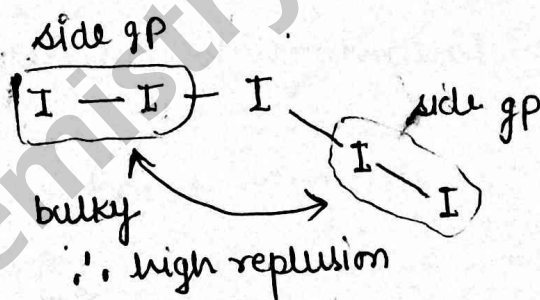 side gp
I — I — I
side gp
I — I
bulky
∴ high replusion
emistry